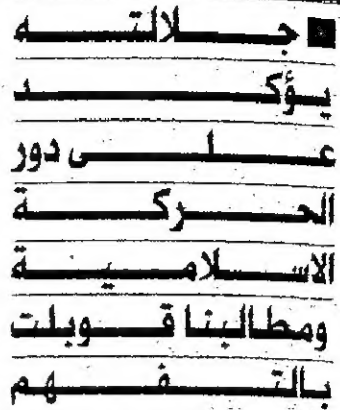 جلالته
يؤكد
على دور
الحركة
الاسلامية
ومطالبنا قوبلت
بالتفهم